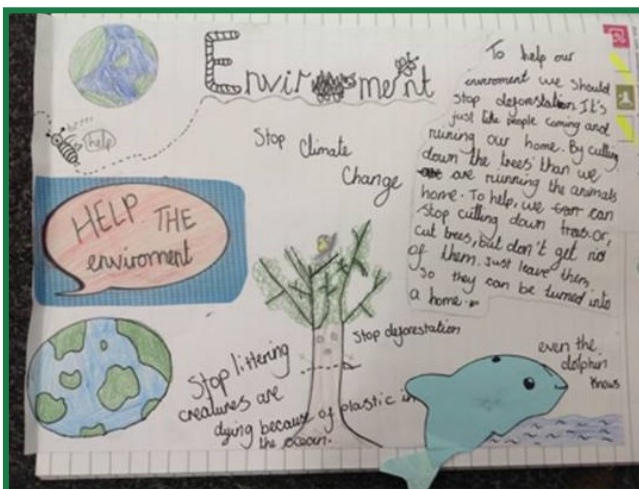 Enviroment
bzzz
help
Stop Climate
Change
HELP THE
enviroment
To help our
enviroment we should
stop deforestation. It's
just like people coming and
ruining our home. By cutting
down the trees than we
are ruining the animals
home. To help, we can
stop cutting down trees or,
cut trees, but don't get rid
of them. Just leave them
so they can be turned into
a home.
Stop deforestation
Stop littering
creatures are
dying because of plastic in
the ocean.
even the
dolphin
knows